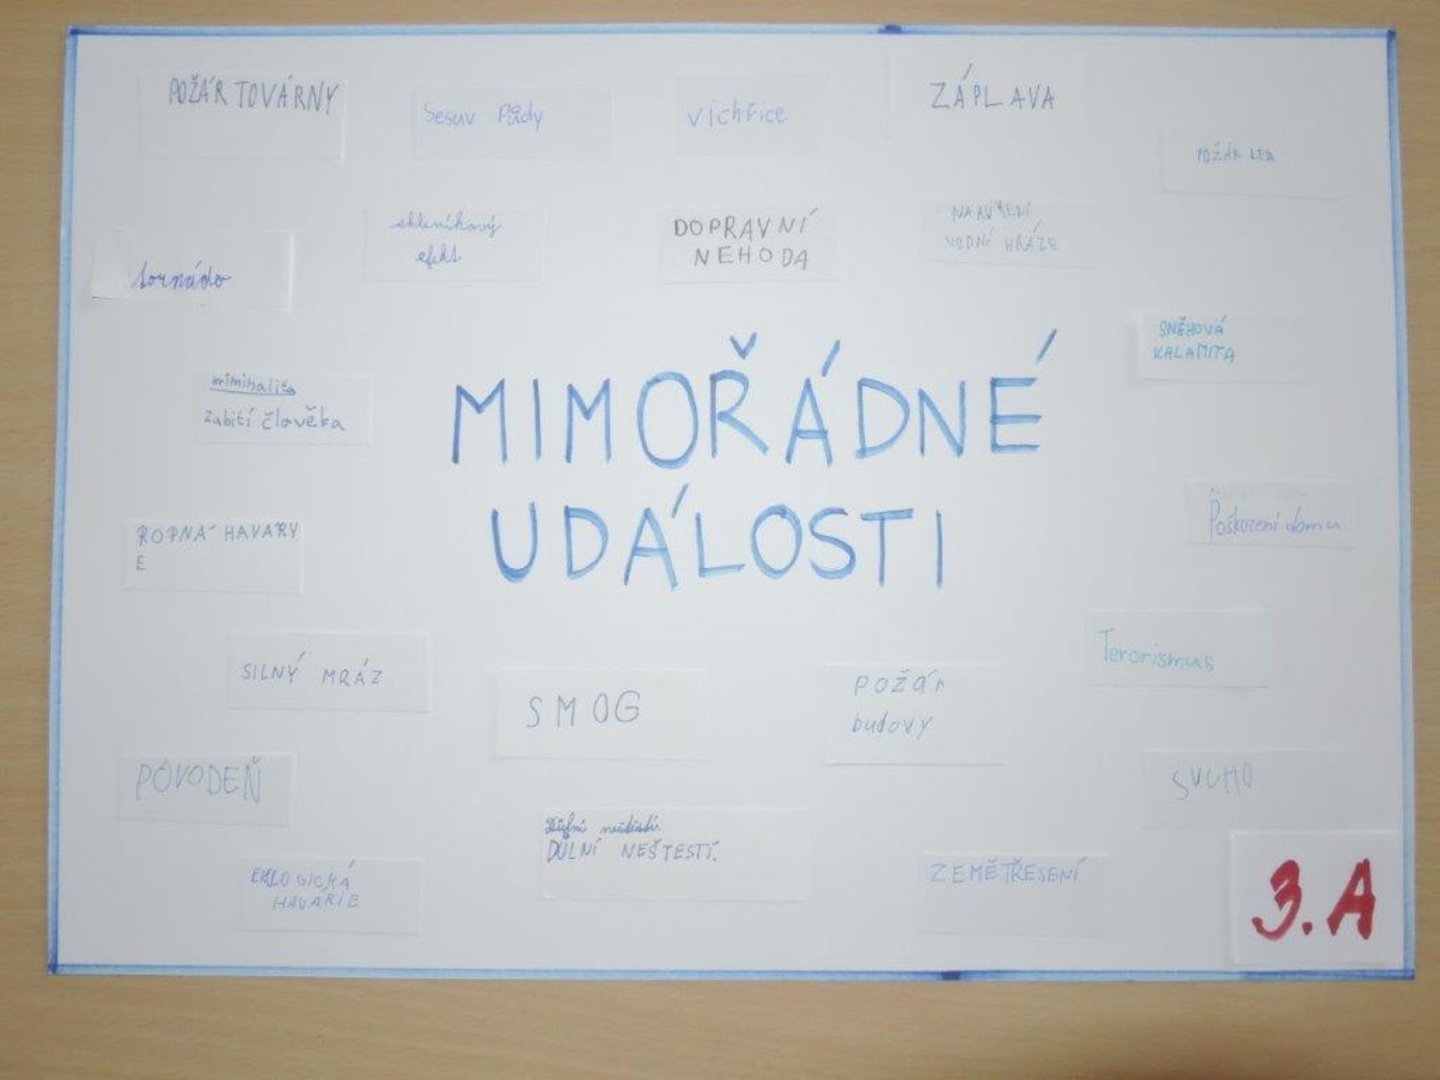 POŽÁR TOVÁRNY
Sesuv Půdy
vichřice
ZÁPLAVA
POŽÁR LESA
tornádo
skleníkový
efekt
DOPRAVNÍ
NEHODA
NARUŠENÍ
VODNÍ HRÁZE
SNĚHOVÁ
KALAMITA
kriminalita
zabití člověka
MIMOŘÁDNÉ
UDÁLOSTI
ROPNÁ HAVARY
E
Poškození domu
SILNÝ MRÁZ
SMOG
POŽÁr
budovy
Terorismus
POVODEŇ
SUCHO
Důlní neštěstí.
DŮLNÍ NEŠTESTÍ.
EKLOGICKÁ
HAVÁRIE
ZEMĚTŘESENÍ
3.A